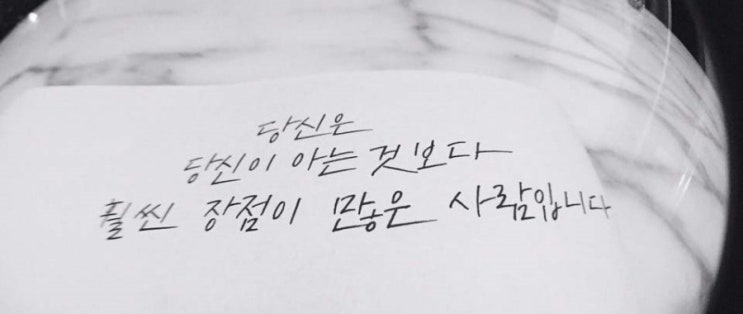 당신은
당신이 아는 것보다
훨씬 장점이 많은 사람입니다